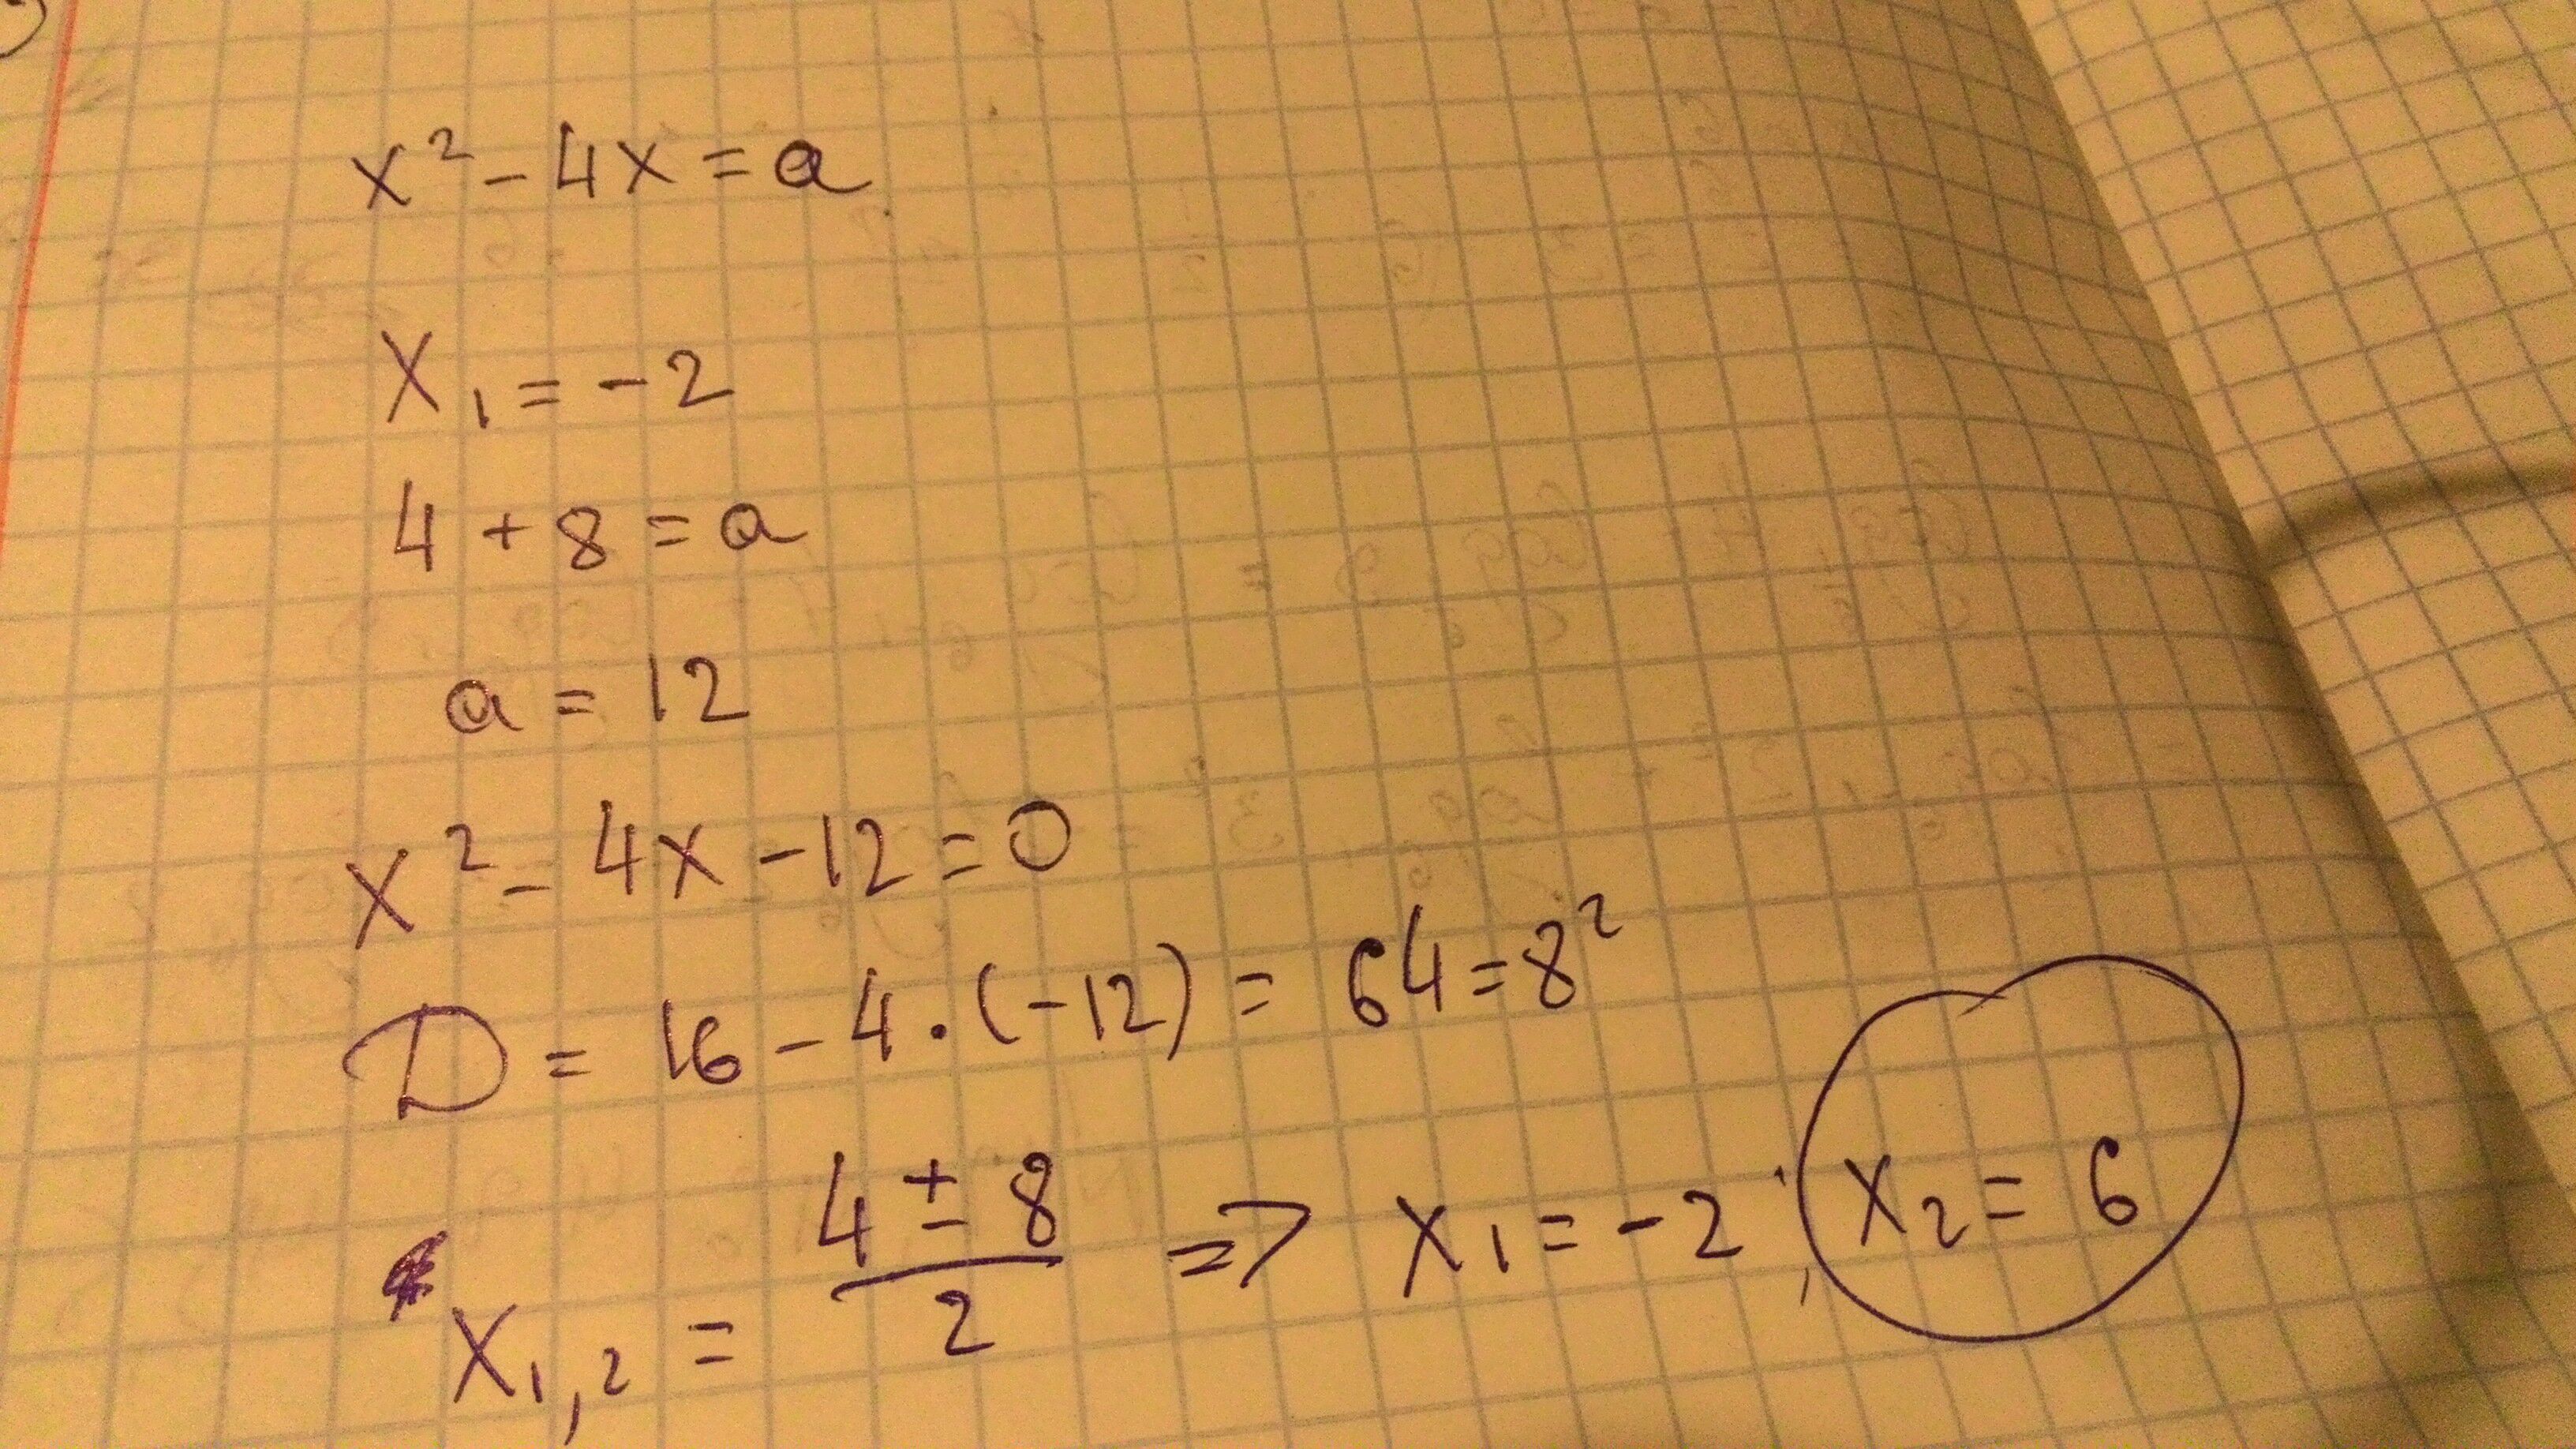 x² - 4x = a
x₁ = -2
4 + 8 = a
a = 12
x² - 4x - 12 = 0
D = 16 - 4 · (-12) = 64 = 8²
x₁,₂ = (4 ± 8)/2 ⇒ x₁ = -2; x₂ = 6